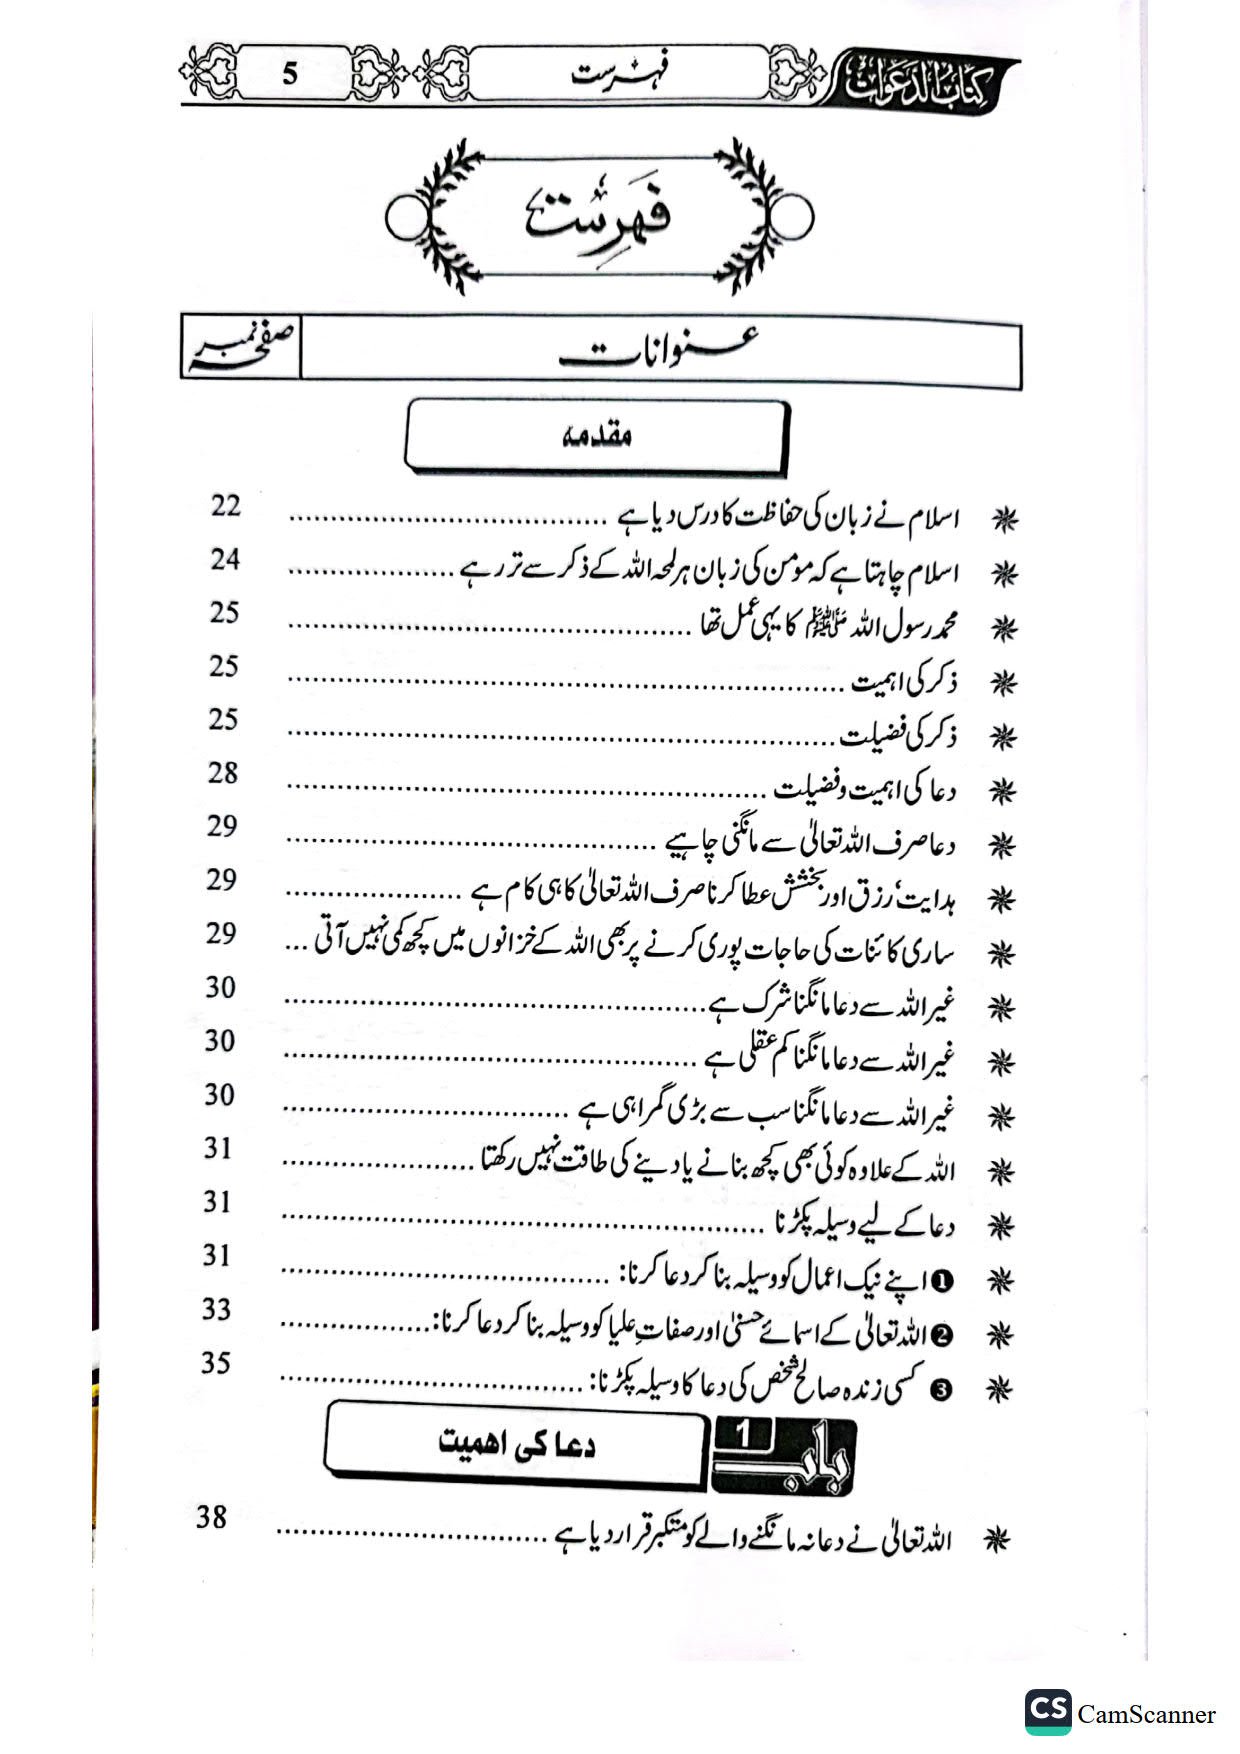 کتاب الدعوات فہرست 5
فہرست
عنوانات صفحہ نمبر
مقدمہ
اسلام نے زبان کی حفاظت کا درس دیا ہے 22
اسلام چاہتا ہے کہ مؤمن کی زبان ہر لمحہ اللہ کے ذکر سے تر رہے 24
محمد رسول اللہ ﷺ کا یہی عمل تھا 25
ذکر کی اہمیت 25
ذکر کی فضیلت 25
دعا کی اہمیت و فضیلت 28
دعا صرف اللہ تعالیٰ سے مانگنی چاہیے 29
ہدایت، رزق اور بخشش عطا کرنا صرف اللہ تعالیٰ کا ہی کام ہے 29
ساری کائنات کی حاجات پوری کرنے پر بھی اللہ کے خزانوں میں کچھ کمی نہیں آتی 29
غیر اللہ سے دعا مانگنا شرک ہے 30
غیر اللہ سے دعا مانگنا کم عقلی ہے 30
غیر اللہ سے دعا مانگنا سب سے بڑی گمراہی ہے 30
اللہ کے علاوہ کوئی بھی کچھ بنانے یا دینے کی طاقت نہیں رکھتا 31
دعا کے لیے وسیلہ پکڑنا 31
❶ اپنے نیک اعمال کو وسیلہ بنا کر دعا کرنا: 31
❷ اللہ تعالیٰ کے اسمائے حسنیٰ اور صفاتِ علیا کو وسیلہ بنا کر دعا کرنا: 33
❸ کسی زندہ صالح شخص کی دعا کا وسیلہ پکڑنا: 35
باب 1 دعا کی اہمیت
اللہ تعالیٰ نے دعا نہ مانگنے والے کو متکبر قرار دیا ہے 38
CS CamScanner